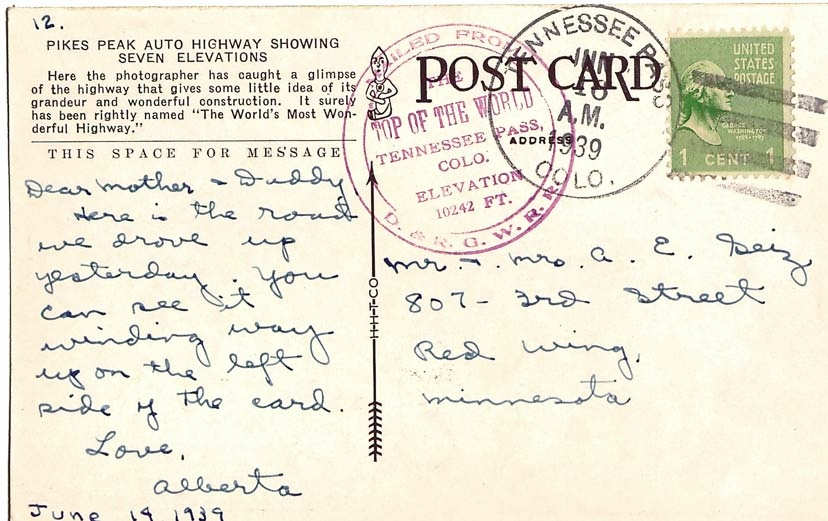 12.
PIKES PEAK AUTO HIGHWAY SHOWING
SEVEN ELEVATIONS
Here the photographer has caught a glimpse
of the highway that gives some little idea of its
grandeur and wonderful construction. It surely
has been rightly named "The World's Most Won-
derful Highway."
THIS SPACE FOR MESSAGE
Dear Mother & Daddy,
Here is the road
we drove up
yesterday. You
can see it
winding way
up on the left
side of the card.
Love,
Alberta
June 14, 1939
POST CARD
ADDRESS
MAILED FROM
THE
TOP OF THE WORLD
TENNESSEE PASS,
COLO.
ELEVATION
10242 FT.
D. & R. G. W. R. R.
TENNESSEE PASS
JUN
A.M.
1939
COLO.
UNITED
STATES
POSTAGE
GEORGE
WASHINGTON
1789-1797
1 CENT 1
H-H-T-CO
Mr. & Mrs. A. E. Seiz
807- 3rd Street
Red Wing,
Minnesota